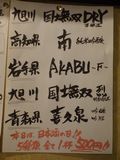 旭川 国士無双 DRY
高知県 南
岩手県 AKABU -F-
旭川 国士無双 烈
青森県 喜久泉
本日は日本酒の日!!
5種類 全て1杯 500円!!